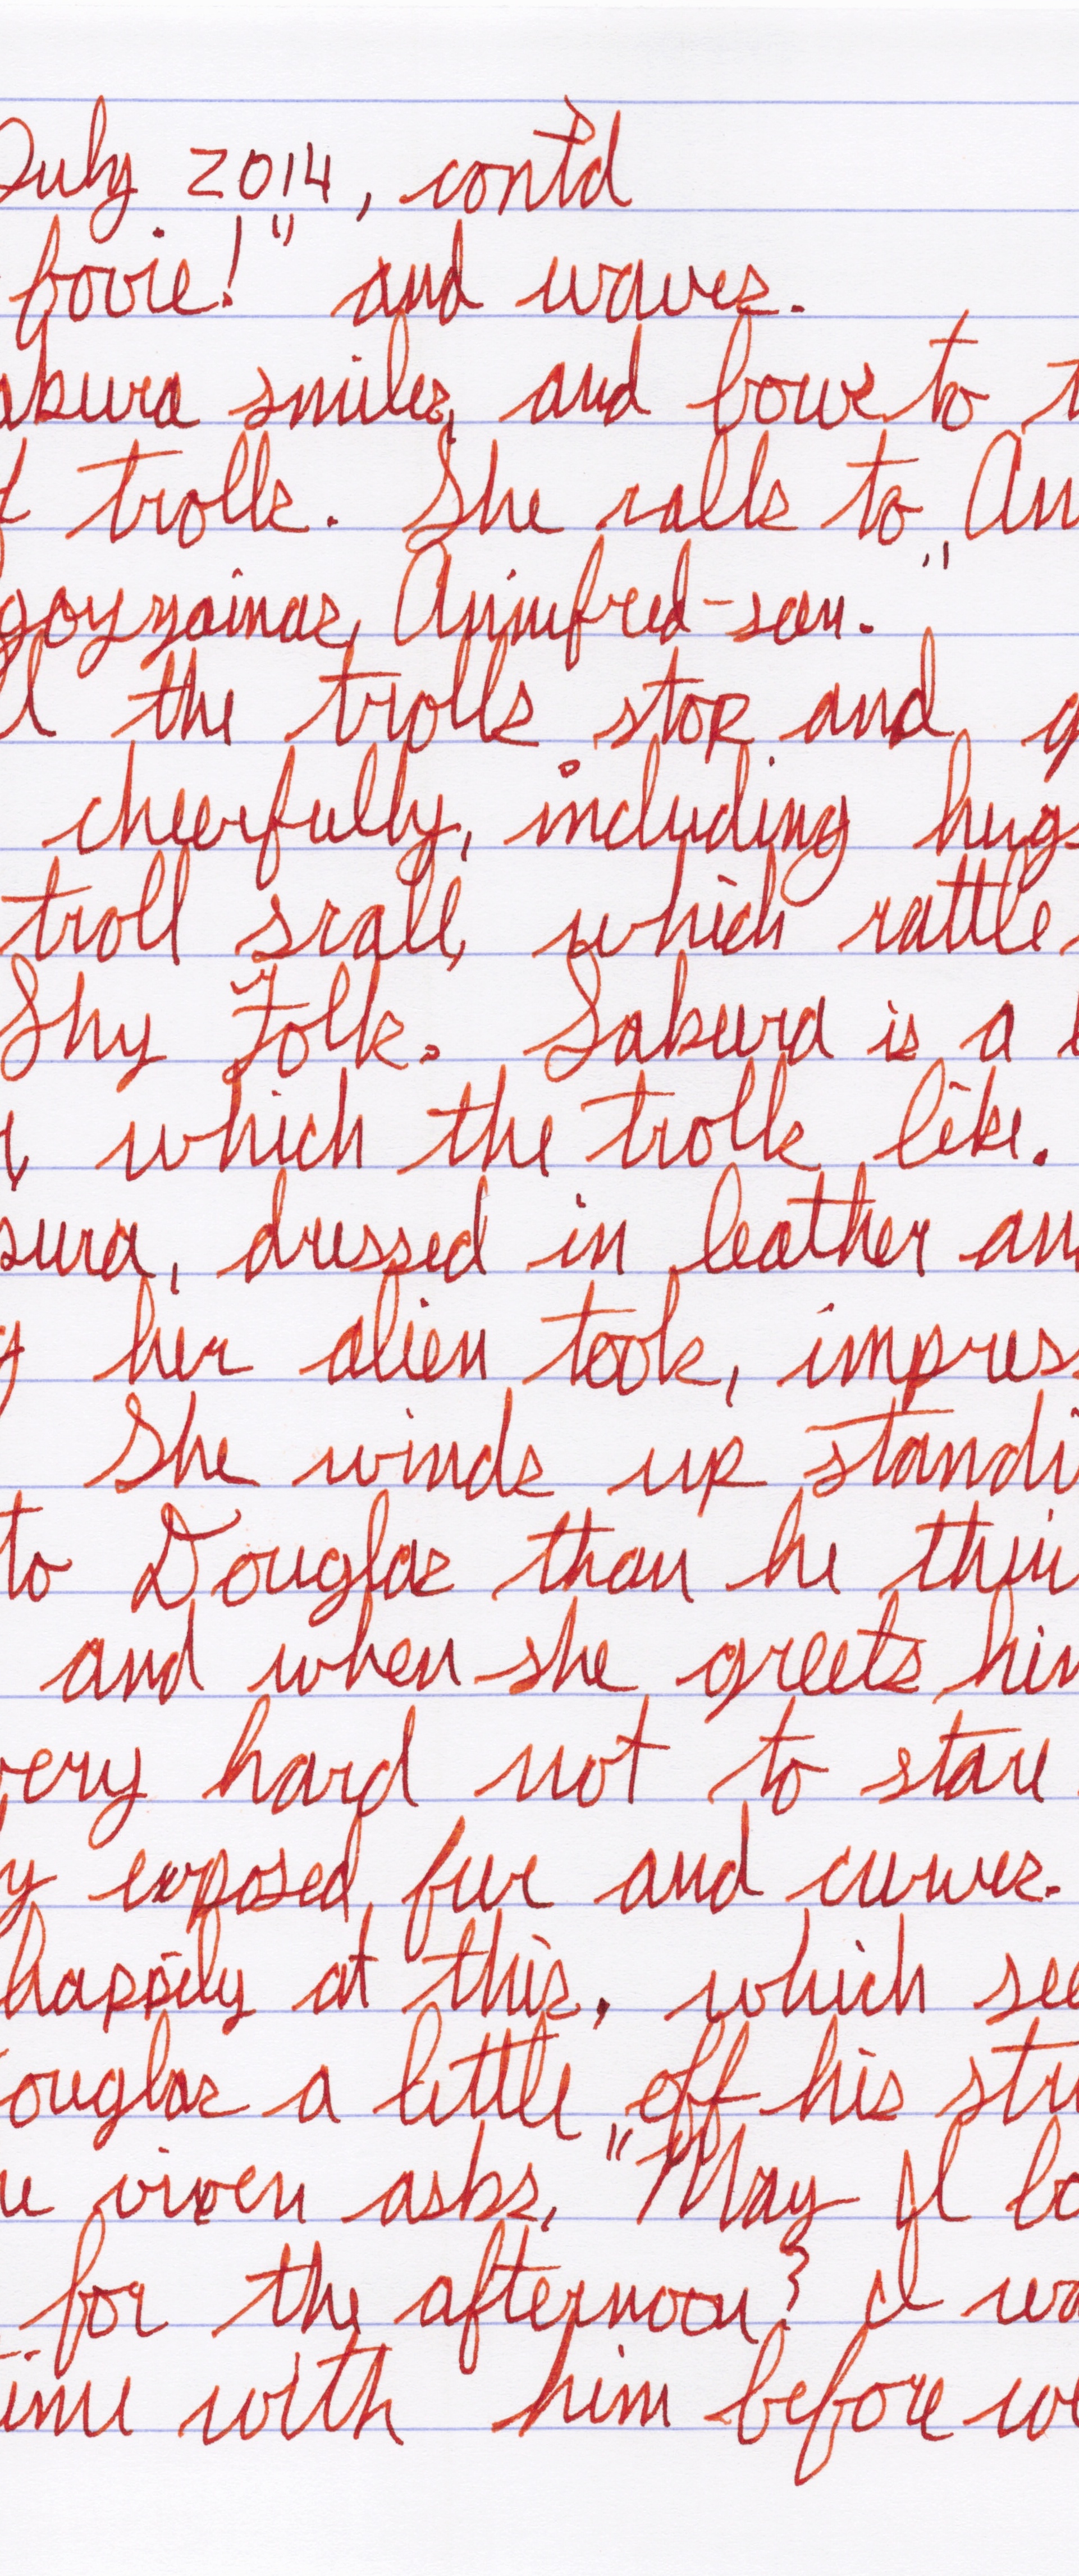 July 2014, cont'd
bovie!" and waves.
akura smiles, and bows to t
f trolls. She ralls to An
goyzaimas, Annifred-san."
ll the trolls stop and g
cheerfully, including hugs
troll srall, which rattle
Shy Folk. Sakura is a
, which the trolls like.
kura, dressed in leather an
g her alien took, impres
She winds up standi
to Douglas than he thin
and when she greets him
very hard not to stare
y exposed fur and curves.
happily at this, which see
ouglas a little off his str
e vixen asks, "May I bo
for the afternoon? I wa
time with him before we